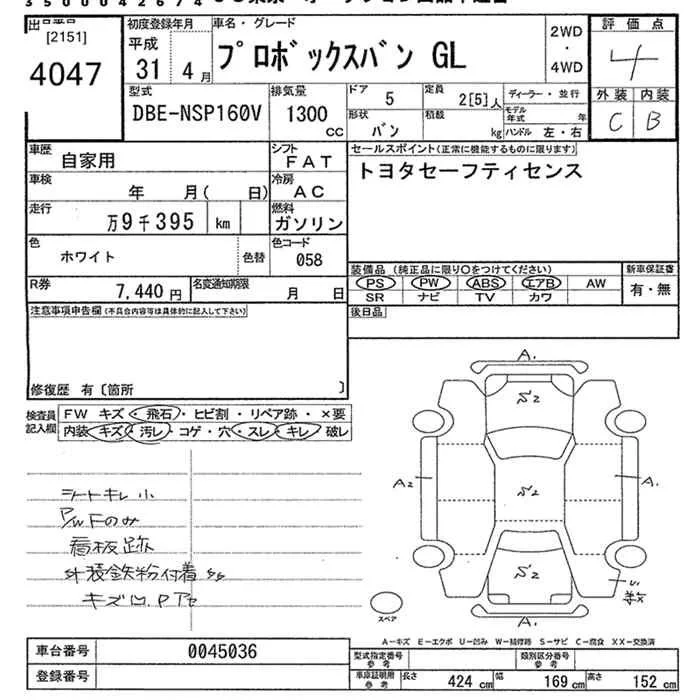 出品番号
[2151]
4047
初度登録年月
平成
31 4月
車名・グレード
プロボックスバン GL
2WD
・
4WD
評価点
4
外装 内装
C B
型式
DBE-NSP160V
排気量
1300
cc
ドア
5
定員
2[5]人
ディーラー・並行
形状
バン
積載
kg
モデル年式 年
ハンドル 左・右
車歴
自家用
シフト
FAT
車検
年 月( 日)
冷房
AC
走行
万9千395 km
燃料
ガソリン
色
ホワイト
色替
色コード
058
R券
7,440円
名変通知期限
月 日
セールスポイント(正常に機能するものに限ります)
トヨタセーフティセンス
装備品 (純正品に限り○をつけてください)
PS PW ABS エアB AW
SR ナビ TV カワ
新車保証書
有・無
後日品
注意事項申告欄(不具合内容等は具体的に記入して下さい)
修復歴 有〔箇所 〕
検査員
記入欄
FW キズ・飛石・ヒビ割・リペア跡・×要
内装 キズ・汚レ・コゲ・穴・スレ・キレ・破レ
シートキレ小
P/W Fのみ
看板跡
外装鉄粉付着
キズ
A.
A2
A.
A.
スペア
A-キズ E-エクボ U-凹み W-補修跡 S-サビ C-腐食 XX-交換済
車台番号
0045036
登録番号
型式指定番号
参考
類別区分番号
参考
車庫証明用
参考
長さ 424 cm 幅 169 cm 高さ 152 cm